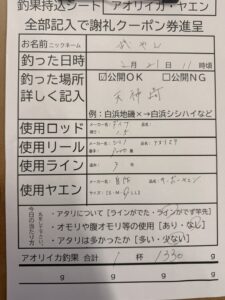 釣果持込シート アオリイカ・ヤエン
全部記入で謝礼クーポン券進呈
お名前ニックネーム
釣った日時 2月21日11時頃
釣った場所 ☑公開OK □公開NG
詳しく記入 天神崎
例:白浜地磯×→白浜シシハイなど
使用ロッド メーカー名: ダイワ
使用リール メーカー名:
使用ライン 3号
使用ヤエン メーカー名:
サイズ:(S・M・L・LL)
今日の当たり方
・アタリについて [ラインがでた・ラインがでず竿先]
・オモリや腹オモリ等の使用 [あり・なし]
・アタリは多かったか [多い・少ない]
アオリイカ釣果 合計 1杯 1330g
g g g g